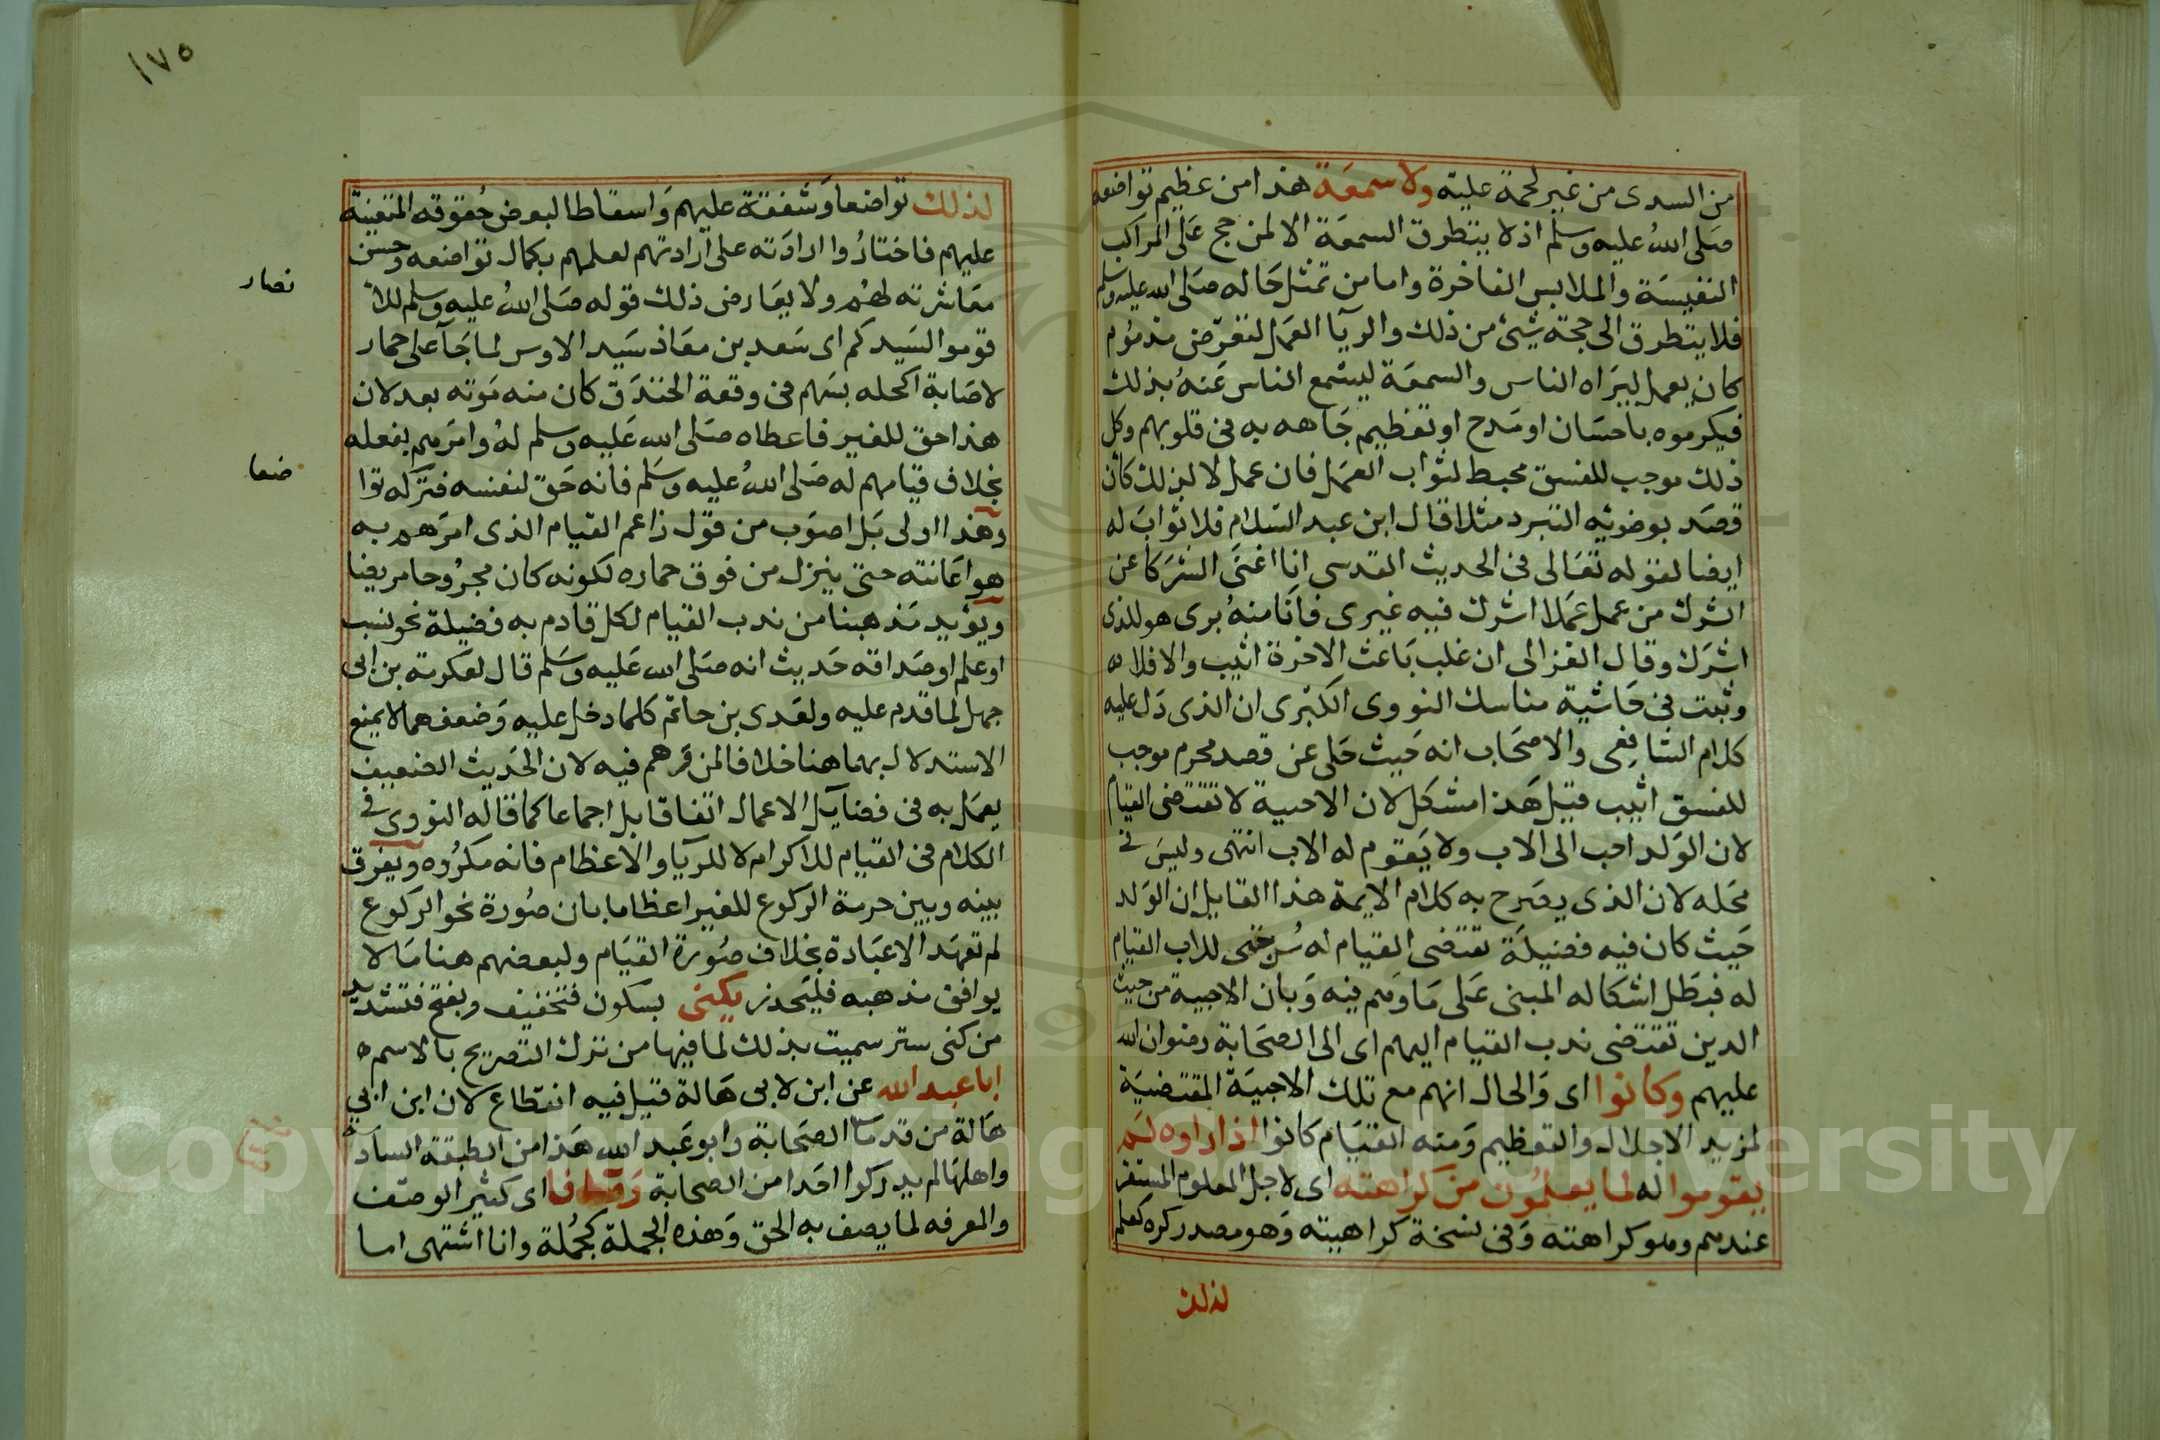 من السدى من غير لحمة علية ولا سمعة هذا من عظيم تواضعه
صلى الله عليه وسلم اذ لا يتطرق السمعة الا لمن حج على المراكب
النفيسة والملابس الفاخرة واما من تمثل حاله صلى الله عليه وسلم
فلا يتطرق الى حجته شئ من ذلك والريآ العمل لتعرض مذموم
كان يعمل ليراه الناس والسمعة ليسمع الناس عنه بذلك
فيكرموه باحسان او مدح او تعظيم جاهه به فى قلوبهم وكل
ذلك موجب للفسق محبط لثواب العمل فان عمل لا لذلك كان
قصد بوضوئه التبرد مثلا قال ابن عبد السلام فلا ثواب له
ايضا لقوله تعالى فى الحديث القدسى انا اغنى الشركا عن
الشرك من عمل عملا اشرك فيه غيرى فانا منه برى هو للذى
اشرك وقال الغزالى ان غلب باعث الاخرة اثيب والا فلا ه
وثبت فى حاشية مناسك النووى الكبرى ان الذى دل عليه
كلام الشافعى والاصحاب انه حيث خلى عن قصد محرم موجب
للفسق اثيب قيل هذا مشكل لان الاحبية لا تقتضى القيام
لان الولد احب الى الاب ولا يقوم له الاب انتهى وليس فى
محله لان الذى يصرح به كلام الايمة هذا القايل ان الولد
حيث كان فيه فضيلة تقتضى القيام له سن حتى للاب القيام
له فبطل اشكاله المبنى على ما وهم فيه وبان الاحبية من حيث
الدين تقتضى ندب القيام اليهم اى الى الصحابة رضوان الله
عليهم وكانوا اى والحال انهم مع تلك الاحبية المقتضية
لمزيد الاجلال والتعظيم ومنه القيام كانوا اذا راوه لم
يقوموا له لما يعلمون من كراهته اى لاجل المعلوم المستقر
عندهم وهو كراهته وفى نسخة كراهيته وهو مصدر كره كعلم
لذلك
١٧٥
لذلك تواضعا وشفقة عليهم واسقاطا لبعض حقوقه المتعينة
عليهم فاختاروا ارادته على ارادتهم لعلمهم بكمال تواضعه وحسن
معاشرته لهم ولا يعارض ذلك قوله صلى الله عليه وسلم للانصار
قوموا لسيدكم اى سعد بن معاذ سيد الاوس لما جآ على حمار
لاصابة اكحله بسهم فى وقعة الخندق كان منه موته بعد لان
هذا حق للغير فاعطاه صلى الله عليه وسلم له وامرهم بفعله
بخلاف قيامهم له صلى الله عليه وسلم فانه حق لنفسه فتركه تواضعا
وهذا اولى بل اصوب من قول زاعم القيام الذى امرهم به
هو اعانته حتى ينزل من فوق حماره لكونه كان مجروحا مريضا
ويؤيد مذهبنا من ندب القيام لكل قادم به فضيلة نحو نسب
او علم او صداقه حديث انه صلى الله عليه وسلم قال لعكرمة بن ابى
جهل لما قدم عليه ولعدى بن حاتم كلما دخل عليه وضعفهما لا يمنع
الاستدلال بهما هنا خلافا لمن قرهم فيه لان الحديث الضعيف
يعمل به فى فضايل الاعمال اتفاقا بل اجماعا كما قاله النووى فى
الكلام فى القيام للاكرام لا للريآ والاعظام فانه مكروه ويفرق
بينه وبين حرمة الركوع للغير اعظاما بان صورة نحو الركوع
لم تعهد الا عبادة بخلاف صورة القيام ولبعضهم هنا ما لا
يوافق مذهبه فليحذر يكنى بسكون فتخفيف وبفتح فتشديد
من كنى ستر سميت بذلك لما فيها من ترك التصريح بالاسم ه
ابا عبد الله عن ابن لابى هالة قيل فيه انقطاع لان ابن ابي
هالة من قدمآ الصحابة وابو عبد الله هذا من الطبقة السادسة
واهلها لم يدركوا احدا من الصحابة وصافا اى كثير الوصف
والمعرفه لما يصف به الحق وهذه الجملة كجملة وانا اشتهى اما
Copyright © King Saud University